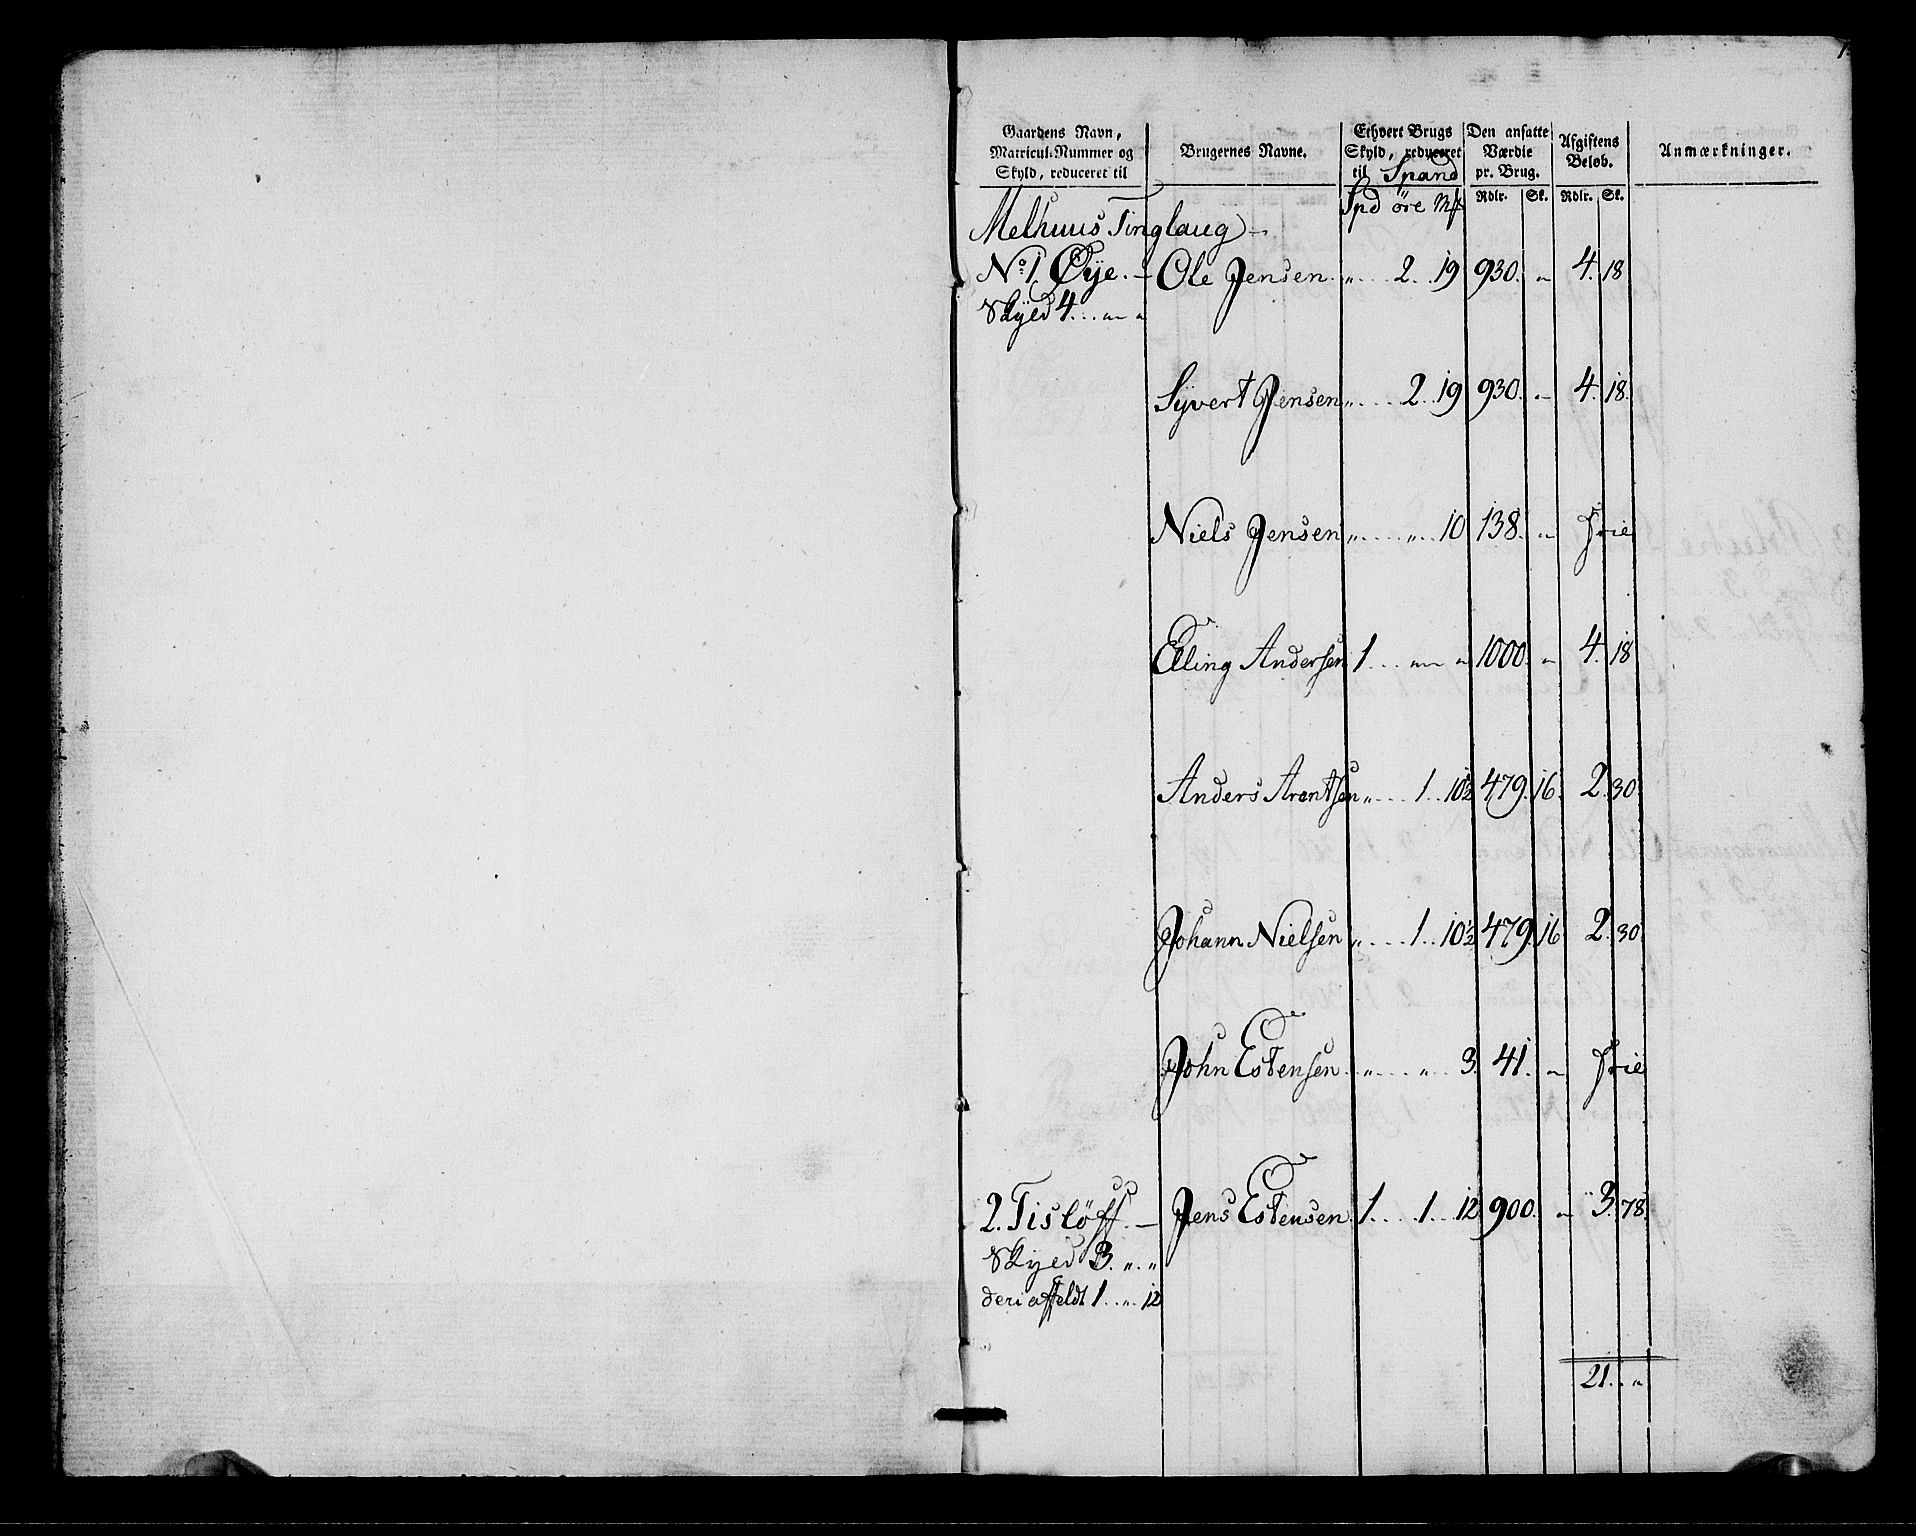 1
Gaardens Navn, Matricul-Nummer og Skyld, reduceret til | Brugernes Navne. | Ethvert Brugs Skyld, reduceret til Spand | Den ansatte Værdie pr. Brug. | Afgiftens Beløb. | Anmærkninger.
Spd öre Mk | Rdlr. | Sk. | Rdlr. | Sk.
Melhuus Tinglaug —
No 1 Øÿe. — Ole Jensen. „ . . . 2 . . 19 930. „ 4. 18
Skyld 4 . . . „ „
Syvert Jensen „ . . . . 2 . . 19 930. „ 4. 18.
Niels Jensen „ . . . . „ . . 10 138. „ frie
Elling Andersen 1 . . . „ „ 1000. „ 4. 18
Anders Arentsen „ . . . . 1 . . 10½ 479. 16. 2. 30.
Johann Nielsen „ . . . . 1 . . 10½ 479. 16 2. 30.
John Estensen. „ . . . . „ . . 3. 41. „ frie
2. Tislöff. — Jens Estensen. 1 . . . . 1 . . 12 900. „ 3. 78.
Skyld 3. „ . „
deri affeldt 1 . . „ . . 12
21 . . „